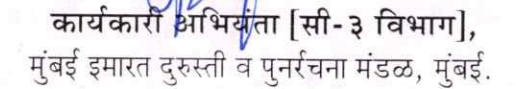 कार्यकारी अभियंता [सी-३ विभाग],
मुंबई इमारत दुरुस्ती व पुनर्रचना मंडळ, मुंबई.